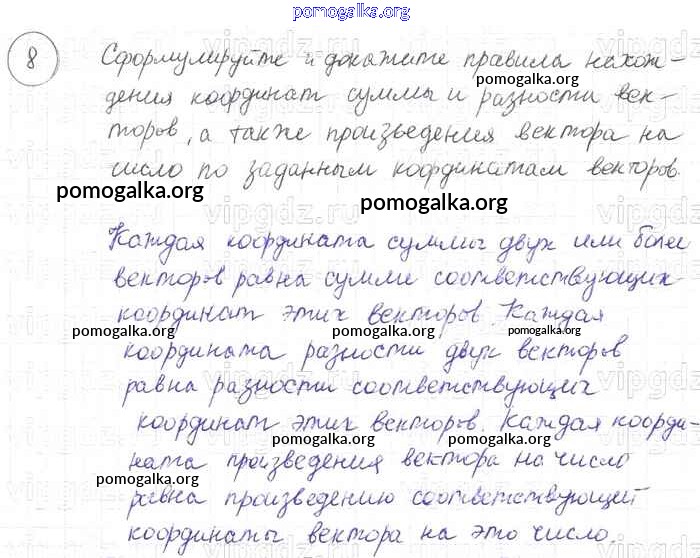 pomogalka.org
8 Сформулируйте и докажите правила нахож-
pomogalka.org
дения координат суммы и разности век-
торов, а также произведения вектора на
pomogalka.org
число по заданным координатам векторов.
pomogalka.org
pomogalka.org
vipgdz.ru
Каждая координата суммы двух или более
векторов равна сумме соответствующих
координат этих векторов. Каждая
pomogalka.org pomogalka.org pomogalka.org
координата разности двух векторов
равна разности соответствующих
координат этих векторов. Каждая коорди-
pomogalka.org pomogalka.org
ната произведения вектора на число
pomogalka.org
равна произведению соответствующей
pomogalka.org
координаты вектора на это число.